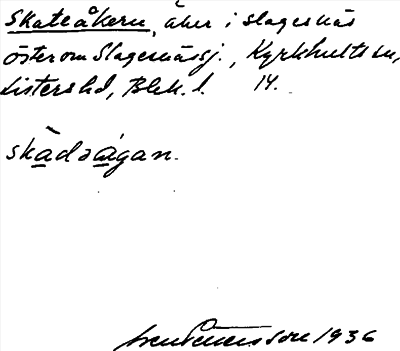 Skateåkern, åker i Slagesnäs
öster om Slagesnässj., Kyrkhults sn,
Listers hd, Blek. l. 14.
skadəågan.
1936